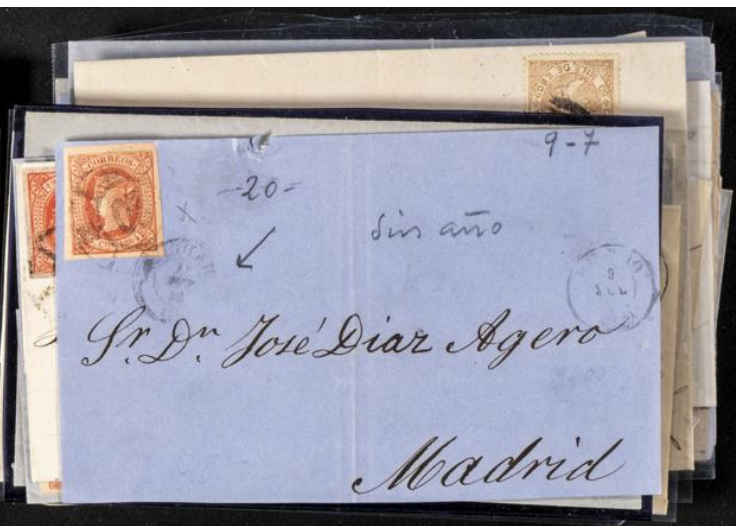 9-7
CORREOS
-20-
sin año
9
JUL
Sr. Dn. José Diaz Agero
Madrid